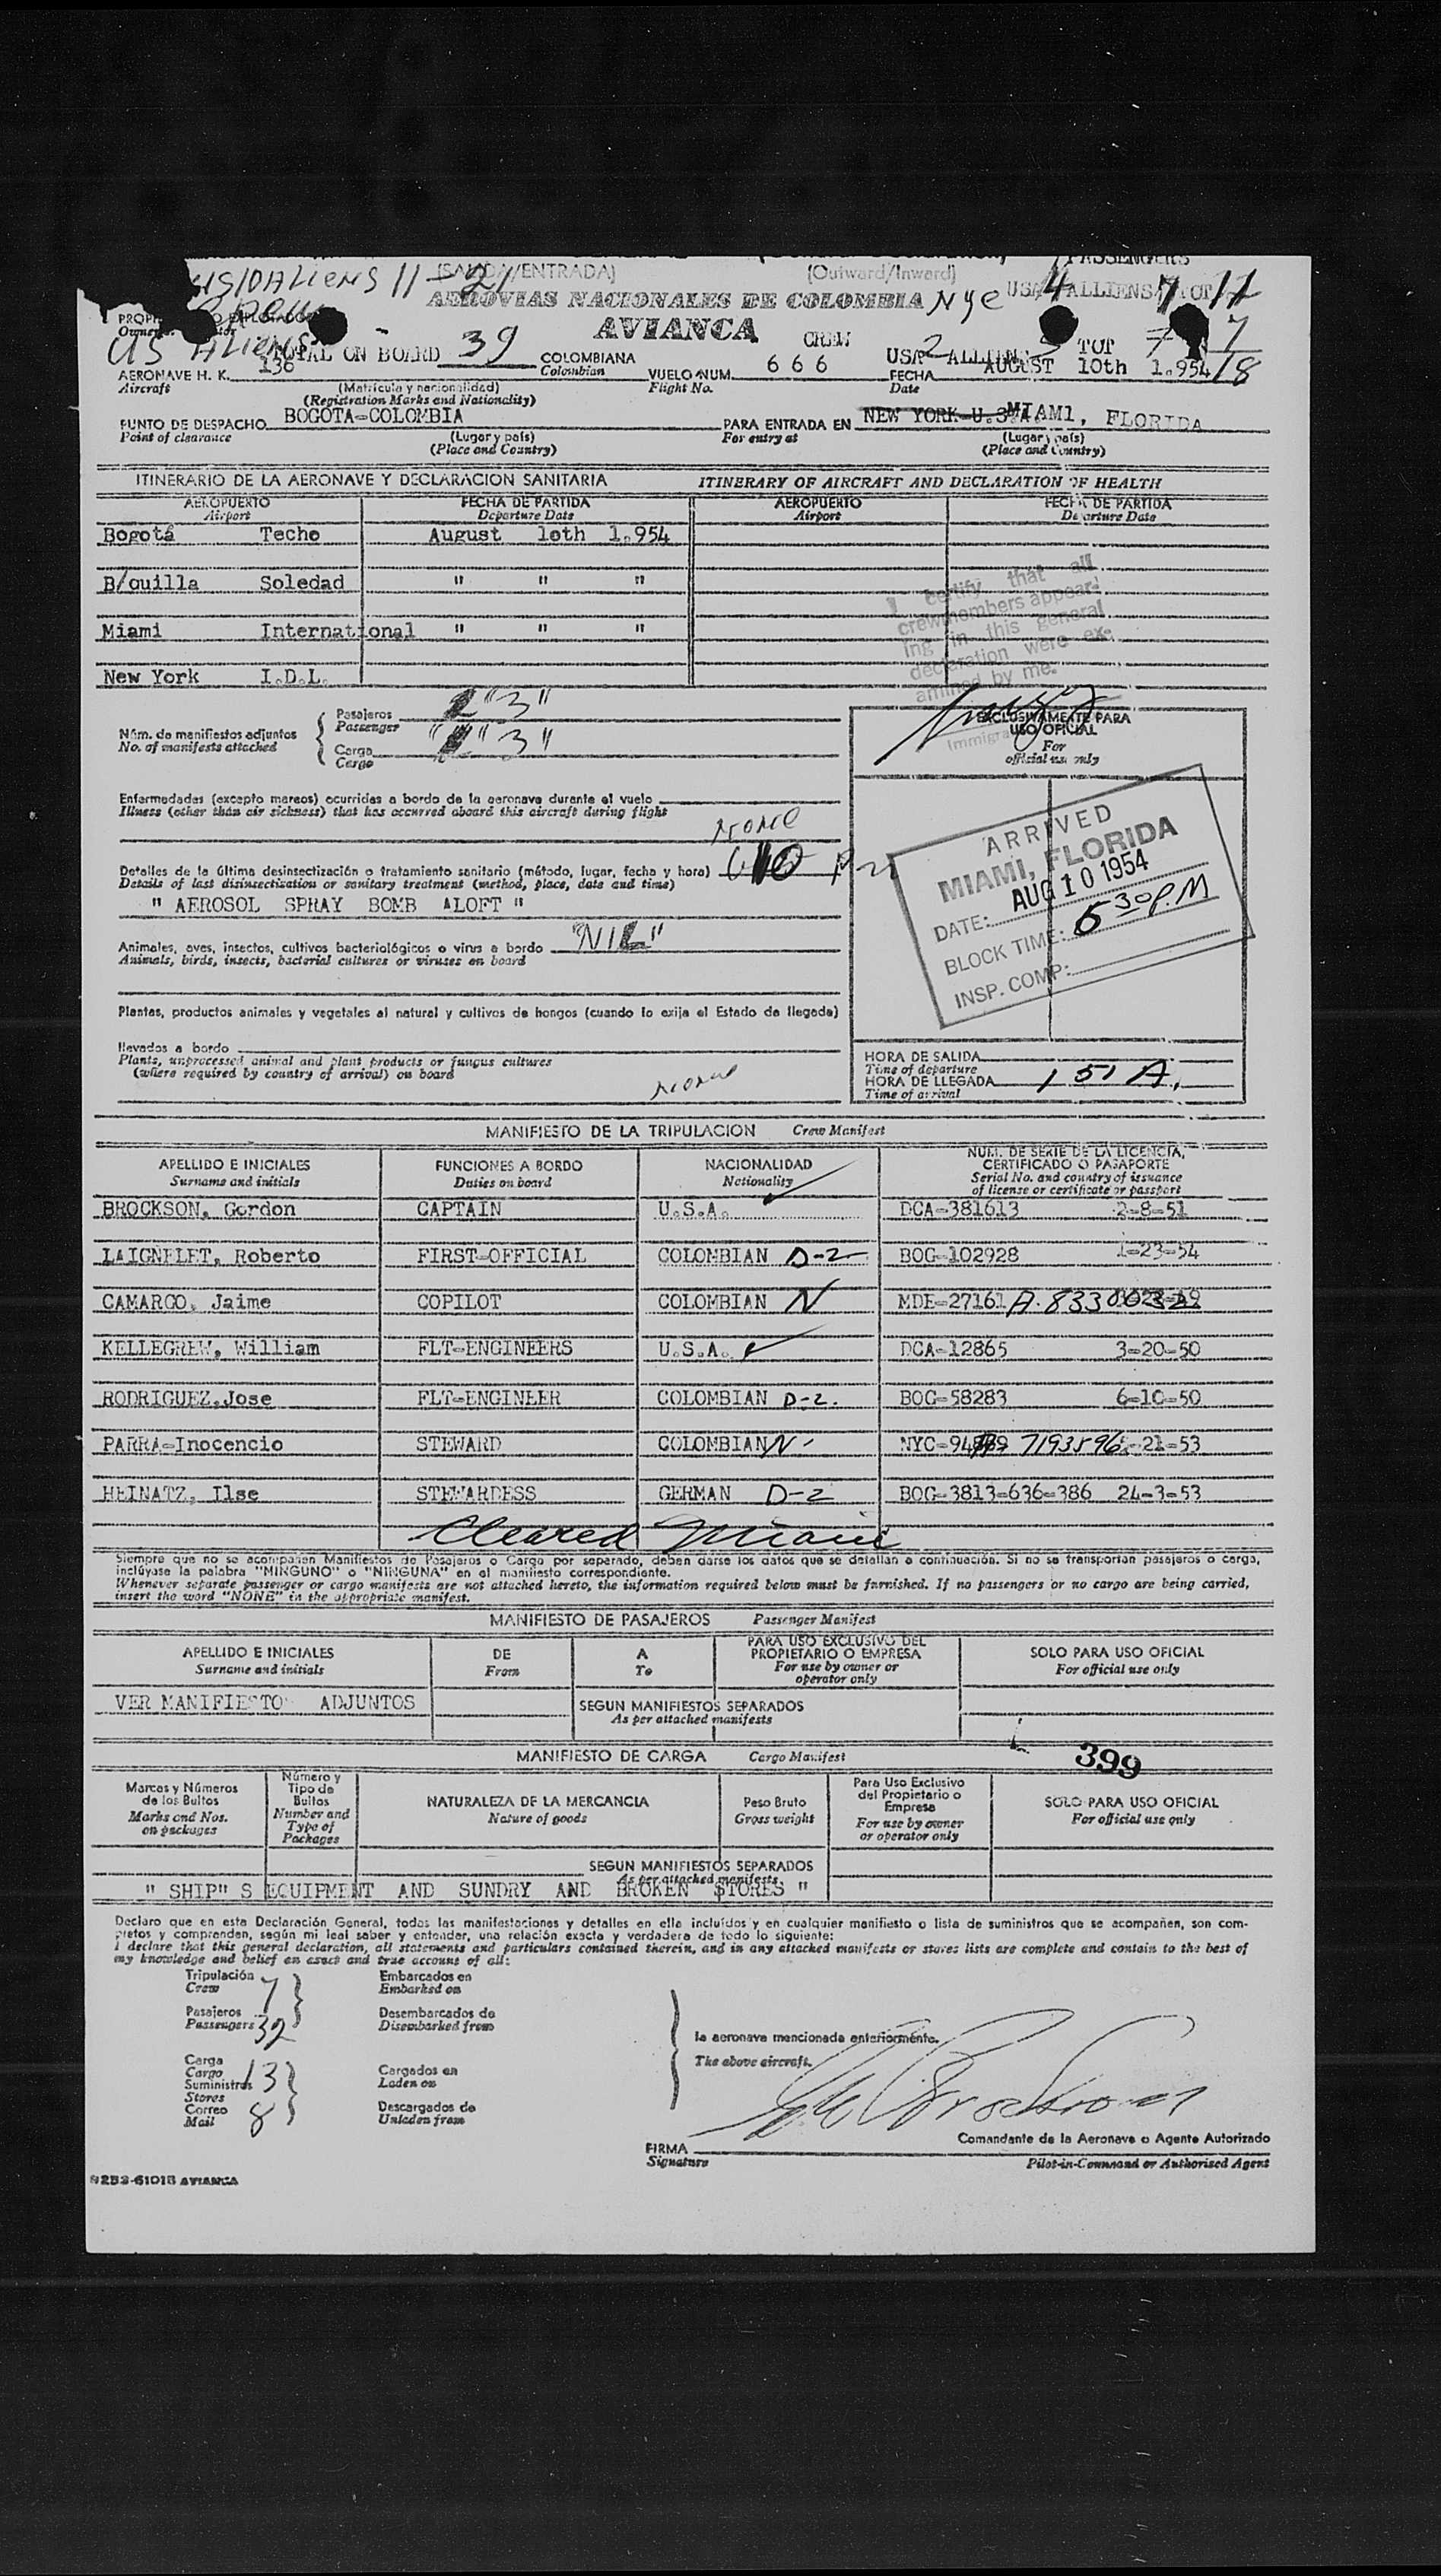 (SALIDA/ENTRADA) (Outward/Inward) PASSENGERS
US/ALIENS 11 - 21
AEROVIAS NACIONALES DE COLOMBIA NYC USA 4 ALLIENS 7 TOT 11
AVIANCA CREW USA 2 ALLIENS 5 TOT 7
US ALIENS
TOTAL ON BOARD 39
18
AERONAVE H. K. 136 COLOMBIANA VUELO NUM. 666 FECHA AUGUST 10th 1.954
Aircraft (Matrícula y nacionalidad) Colombian Flight No. Date
(Registration Marks and Nationality)
PUNTO DE DESPACHO BOGOTA-COLOMBIA PARA ENTRADA EN NEW YORK-U.S. MIAMI, FLORIDA
Point of clearance (Lugar y país) For entry at (Lugar y país)
(Place and Country) (Place and Country)
ITINERARIO DE LA AERONAVE Y DECLARACION SANITARIA ITINERARY OF AIRCRAFT AND DECLARATION OF HEALTH
AEROPUERTO FECHA DE PARTIDA AEROPUERTO FECHA DE PARTIDA
Airport Departure Date Airport Departure Date
Bogotá Techo August 10th 1.954
B/quilla Soledad " " "
Miami International " " "
New York I.D.L.
I certify that all
crewmembers appear-
ing in this general
declaration were ex-
amined by me.
Núm. de manifiestos adjuntos Pasajeros "3"
No. of manifests attached Passenger
Carga "3"
Cargo
EXCLUSIVAMENTE PARA
USO OFICIAL
For
official use only
Enfermedades (excepto mareos) ocurridas a bordo de la aeronave durante el vuelo
Illness (other than air sickness) that has occurred aboard this aircraft during flight
None
Detalles de la última desinsectización o tratamiento sanitario (método, lugar, fecha y hora)
Details of last disinsectization or sanitary treatment (method, place, date and time)
" AEROSOL SPRAY BOMB ALOFT "
ARRIVED
MIAMI, FLORIDA
DATE: AUG 10 1954
BLOCK TIME: 530 P.M
INSP. COMP:
Animales, aves, insectos, cultivos bacteriológicos o virus a bordo "NIL"
Animals, birds, insects, bacterial cultures or viruses on board
Plantas, productos animales y vegetales al natural y cultivos de hongos (cuando lo exija el Estado de llegada)
llevados a bordo
Plants, unprocessed animal and plant products or fungus cultures
(where required by country of arrival) on board
None
HORA DE SALIDA
Time of departure
HORA DE LLEGADA 1 51 A.
Time of arrival
MANIFIESTO DE LA TRIPULACION Crew Manifest
APELLIDO E INICIALES FUNCIONES A BORDO NACIONALIDAD NUM. DE SERIE DE LA LICENCIA,
CERTIFICADO O PASAPORTE
Surname and initials Duties on board Nationality Serial No. and country of issuance
of license or certificate or passport
BROCKSON, Gordon CAPTAIN U.S.A. DCA-381613 2-8-51
LAIGNELET, Roberto FIRST-OFFICIAL COLOMBIAN D-2 BOG-102928 1-23-54
CAMARGO, Jaime COPILOT COLOMBIAN N MDE-27161 A.
KELLEGREW, William FLT-ENGINEERS U.S.A. DCA-12865 3-20-50
RODRIGUEZ,Jose FLT-ENGINEER COLOMBIAN D-2. BOG-58283 6-10-50
PARRA-Inocencio STEWARD COLOMBIAN N 7193596 -21-53
HEINATZ, Ilse STEWARDESS GERMAN D-2 BOG-3813-636-386 24-3-53
Cleared Miami
Siempre que no se acompañen Manifiestos de Pasajeros o Carga por separado, deben darse los datos que se detallan a continuación. Si no se transportan pasajeros o carga,
inclúyase la palabra "NINGUNO" o "NINGUNA" en el manifiesto correspondiente.
Whenever separate passenger or cargo manifests are not attached hereto, the information required below must be furnished. If no passengers or no cargo are being carried,
insert the word "NONE" in the appropriate manifest.
MANIFIESTO DE PASAJEROS Passenger Manifest
APELLIDO E INICIALES DE A PARA USO EXCLUSIVO DEL
PROPIETARIO O EMPRESA SOLO PARA USO OFICIAL
Surname and initials From To For use by owner or
operator only For official use only
VER MANIFIESTO ADJUNTOS SEGUN MANIFIESTOS SEPARADOS
As per attached manifests
MANIFIESTO DE CARGA Cargo Manifest 399
Marcas y Números
de los Bultos
Marks and Nos.
on packages
Número y
Tipo de
Bultos
Number and
Type of
Packages
NATURALEZA DE LA MERCANCIA
Nature of goods
Peso Bruto
Gross weight
Para Uso Exclusivo
del Propietario o
Empresa
For use by owner
or operator only
SOLO PARA USO OFICIAL
For official use only
SEGUN MANIFIESTOS SEPARADOS
As per attached manifests
" SHIP" S EQUIPMENT AND SUNDRY AND BROKEN STORES "
Declaro que en esta Declaración General, todas las manifestaciones y detalles en ella incluídos y en cualquier manifiesto o lista de suministros que se acompañen, son com-
pletos y comprenden, según mi leal saber y entender, una relación exacta y verdadera de todo lo siguiente:
I declare that this general declaration, all statements and particulars contained therein, and in any attached manifests or stores lists are complete and contain to the best of
my knowledge and belief an exact and true account of all:
Tripulación 7 Embarcados en
Crew Embarked on
Pasajeros Desembarcados de
Passengers 32 Disembarked from
la aeronave mencionada anteriormente.
The above aircraft.
Carga
Cargo 13 Cargados en
Suministros Laden on
Stores
Correo 8 Descargados de
Mail Unladen from
Comandante de la Aeronave o Agente Autorizado
FIRMA
Signature Pilot-in-Command or Authorized Agent
AVIANCA